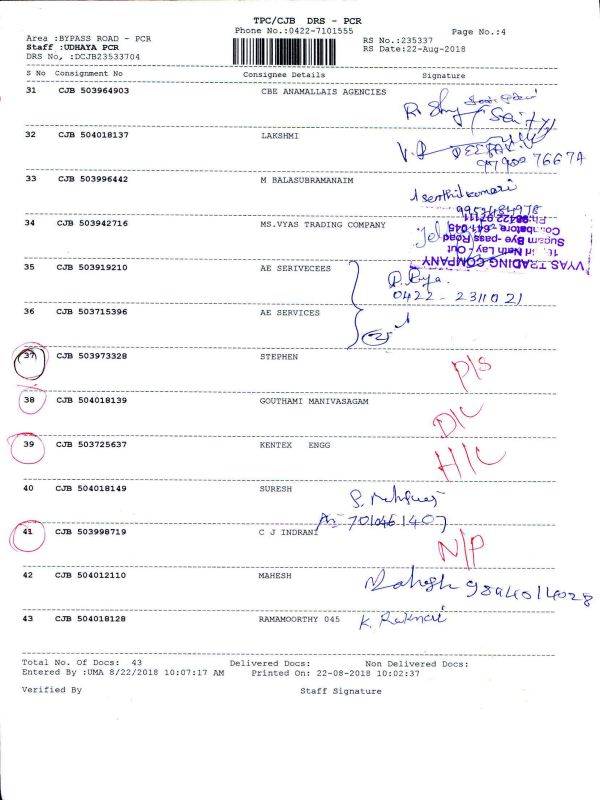 TPC/CJB DRS - PCR
Phone No.:0422-7101555 Page No.:4
Area :BYPASS ROAD - PCR RS No.:235337
Staff :UDHAYA PCR RS Date:22-Aug-2018
DRS No, :DCJB23533704
S No Consignment No Consignee Details Signature
31 CJB 503964903 CBE ANAMALLAIS AGENCIES
32 CJB 504018137 LAKSHMI
DEEPAK
33 CJB 503996442 M BALASUBRAMANAIM
34 CJB 503942716 MS.VYAS TRADING COMPANY
Ph:98422 97111
641 045
Sugam Bye -pass Road
Nath Lay - Out
VYAS TRADING COMPANY
35 CJB 503919210 AE SERIVECEES
0422 - 2311021
36 CJB 503715396 AE SERVICES
37 CJB 503973328 STEPHEN P/S
38 CJB 504018139 GOUTHAMI MANIVASAGAM D/C
39 CJB 503725637 KENTEX ENGG H/C
40 CJB 504018149 SURESH
7010461407
41 CJB 503998719 C J INDRANI N/P
42 CJB 504012110 MAHESH Mahesh 9894014028
43 CJB 504018128 RAMAMOORTHY 045 K.
Total No. Of Docs: 43 Delivered Docs: Non Delivered Docs:
Entered By :UMA 8/22/2018 10:07:17 AM Printed On: 22-08-2018 10:02:37
Verified By Staff Signature